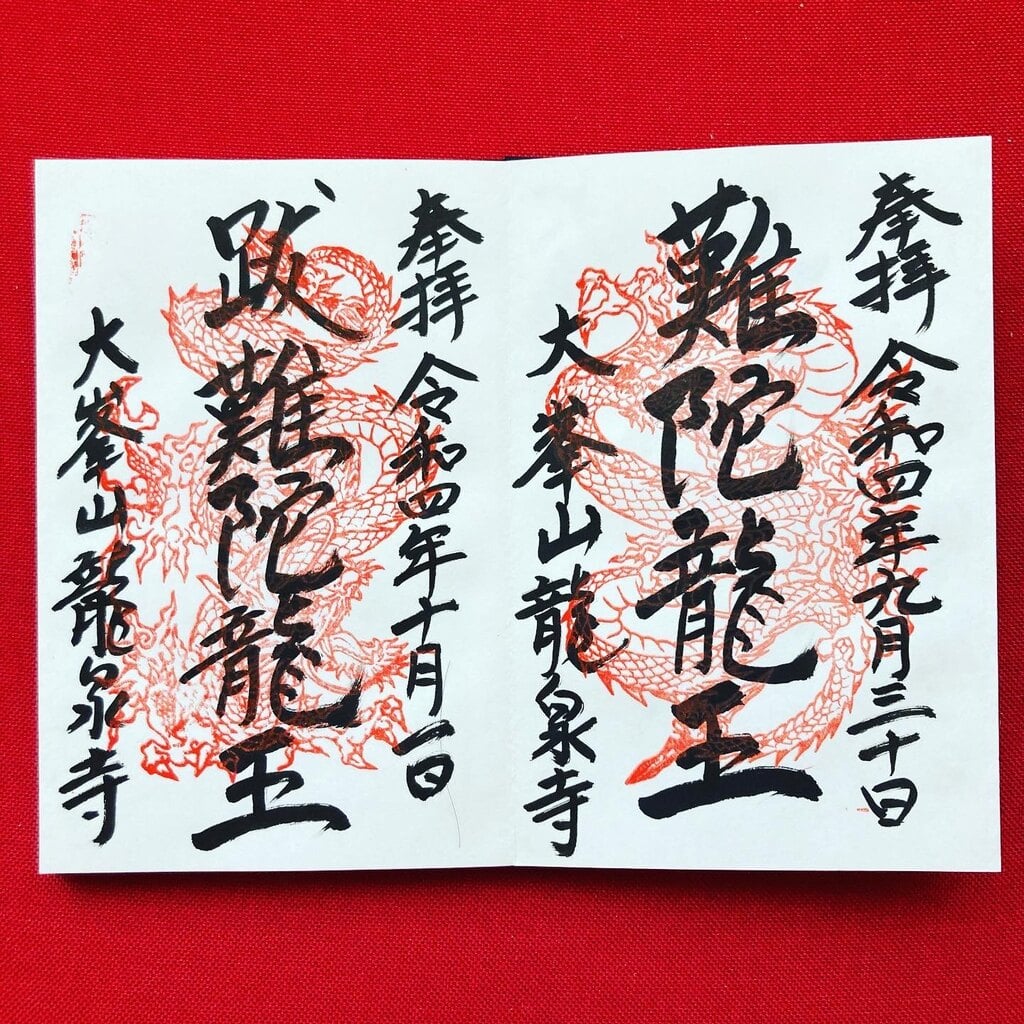 奉拝 令和四年九月三十日
難陀龍王
大峯山龍泉寺
奉拝 令和四年十月一日
跋難陀龍王
大峯山龍泉寺